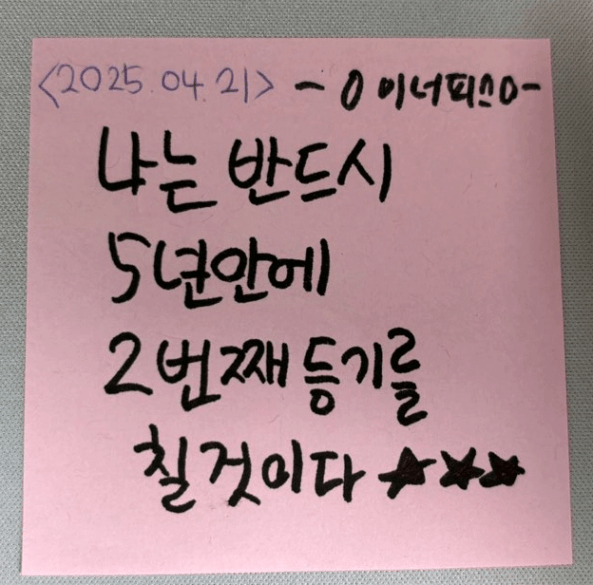 <2025.04.21> - O 이너피스O-
나는 반드시
5년안에
2번째 등기를
칠것이다 ★★★